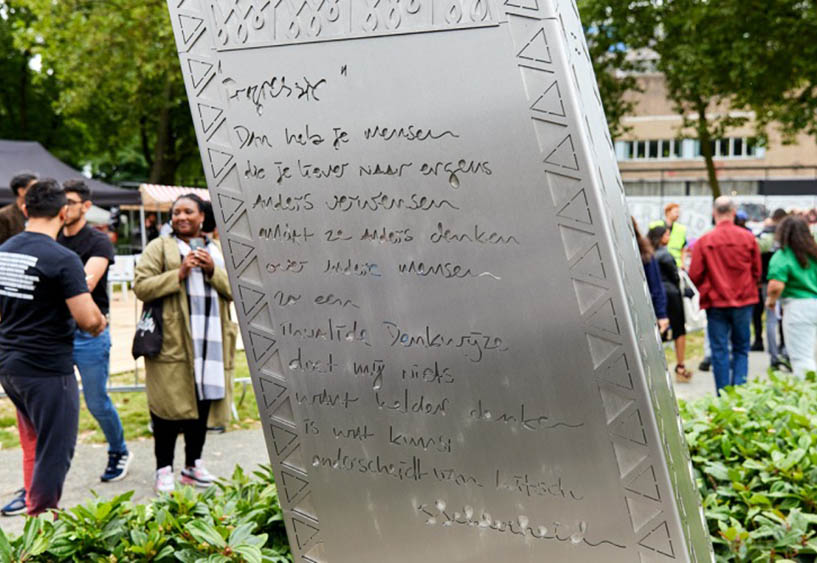 "Progressie"
Dan heb je mensen
die je liever naar ergens
anders verwensen
omdat ze anders denken
over andere mensen
zo een
invalide Denkwijze
doet mij niets
want helder denken
is wat kunst
onderscheidt van kitsch